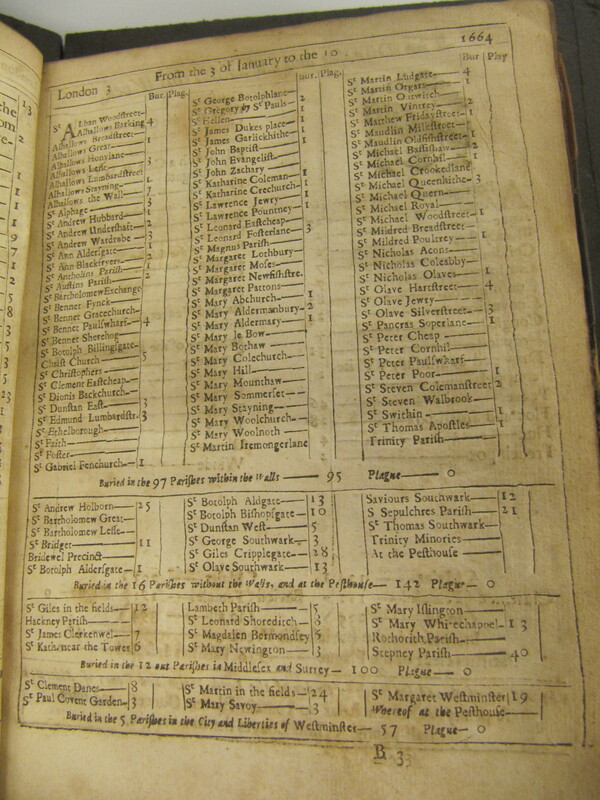 From the 3 of Ianuary to the 10. 1664
London 3 Bur. Plag. Bur. Plag. Bur Plag
Sᵗ ALban Woodstreet
Alhallows Barking 4
Alhallows Breadstreet
Alhallows Great 1
Alhallows Honylane
Alhallows Lesse 3
Alhallows Lumbardstreet
Alhallows Stayning 1
Alhallows the Wall 7
Sᵗ Alphage 3
Sᵗ Andrew Hubbard 1
Sᵗ Andrew Undershaft 2
Sᵗ Andrew Wardrobe 3
Sᵗ Ann Aldersgate 1
Sᵗ Ann Blackfryers 2
Sᵗ Antholins Parish 1
Sᵗ Austins Parish 2
Sᵗ Bartholomew Exchange
Sᵗ Bennet Fynck
Sᵗ Bennet Gracechurch
Sᵗ Bennet Paulswharf 4
Sᵗ Bennet Sherehog
Sᵗ Botolph Billingsgate
Christ Church 5
Sᵗ Christophers
Sᵗ Clement Eastcheap
Sᵗ Dionis Backchurch
Sᵗ Dunstan East 3
Sᵗ Edmund Lumbardstr. 3
Sᵗ Ethelborough
Sᵗ Faith
Sᵗ Foster
Sᵗ Gabriel Fenchurch 1
Sᵗ George Botolphlane
Sᵗ Gregory by Sᵗ Pauls 2
Sᵗ Hellen 1
Sᵗ James Dukes place 1
Sᵗ James Garlickhithe 1
Sᵗ John Baptist
Sᵗ John Evangelist
Sᵗ John Zachary
Sᵗ Katharine Coleman 1
Sᵗ Katharine Creechurch 1
Sᵗ Lawrence Jewry 1
Sᵗ Lawrence Pountney 1
Sᵗ Leonard Eastcheap
Sᵗ Leonard Fosterlane 3
Sᵗ Magnus Parish
Sᵗ Margaret Lothbury
Sᵗ Margaret Moses
Sᵗ Margaret Newfishstre.
Sᵗ Margaret Pattons
Sᵗ Mary Abchurch 1
Sᵗ Mary Aldermanbury 2
Sᵗ Mary Aldermary 1
Sᵗ Mary le Bow
Sᵗ Mary Bothaw
Sᵗ Mary Colechurch
Sᵗ Mary Hill
Sᵗ Mary Mounthaw
Sᵗ Mary Sommerset
Sᵗ Mary Stayning
Sᵗ Mary Woolchurch
Sᵗ Mary Woolnoth
Sᵗ Martin Iremongerlane
Sᵗ Martin Ludgate 4
Sᵗ Martin Orgars
Sᵗ Martin Outwitch 1
Sᵗ Martin Vintrey 2
Sᵗ Matthew Fridaystreet 1
Sᵗ Maudlin Milkstreet
Sᵗ Maudlin Oldfishstreet 1
Sᵗ Michael Bassishaw 2
Sᵗ Michael Cornhil 1
Sᵗ Michael Crookedlane
Sᵗ Michael Queenhithe 3
Sᵗ Michael Quern
Sᵗ Michael Royal
Sᵗ Michael Woodstreet 1
Sᵗ Mildred Breadstreet
Sᵗ Mildred Poultrey 1
Sᵗ Nicholas Acons
Sᵗ Nicholas Coleabby
Sᵗ Nicholas Olaves 1
Sᵗ Olave Hartstreet 4
Sᵗ Olave Jewry
Sᵗ Olave Silverstreet 3
Sᵗ Pancras Soperlane 1
Sᵗ Peter Cheap
Sᵗ Peter Cornhil
Sᵗ Peter Paulswharf
Sᵗ Peter Poor 1
Sᵗ Steven Colemanstreet 2
Sᵗ Steven Walbrook
Sᵗ Swithin 1
Sᵗ Thomas Apostles 1
Trinity Parish
Buried in the 97 Parishes within the Walls 95 Plague 0
Sᵗ Andrew Holborn 25
Sᵗ Bartholomew Great
Sᵗ Bartholomew Lesse
Sᵗ Bridget 11
Bridewel Precinct
Sᵗ Botolph Aldersgate 1
Sᵗ Botolph Aldgate 13
Sᵗ Botolph Bishopsgate 10
Sᵗ Dunstan West 5
Sᵗ George Southwark 3
Sᵗ Giles Cripplegate 28
Sᵗ Olave Southwark 13
Saviours Southwark 12
S Sepulchres Parish 21
Sᵗ Thomas Southwark
Trinity Minories
At the Pesthouse
Buried in the 16 Parishes without the Walls, and at the Pesthouse 142 Plague 0
Sᵗ Giles in the fields 12
Hackney Parish
Sᵗ James Clerkenwel 7
Sᵗ Kath. near the Tower 6
Lambeth Parish 5
Sᵗ Leonard Shoreditch
Sᵗ Magdalen Bermondsey 5
Sᵗ Mary Newington 3
Sᵗ Mary Islington
Sᵗ Mary Whitechappel 13
Rothorith Parish
Stepney Parish 40
Buried in the 12 out Parishes in Middlesex and Surrey 100 Plague 0
Sᵗ Clement Danes 8
Sᵗ Paul Covent Garden 3
Sᵗ Martin in the fields 24
Sᵗ Mary Savoy 3
Sᵗ Margaret Westminster 19
Whereof at the Pesthouse
Buried in the 5 Parishes in the City and Liberties of Westminster 57 Plague 0
B 33